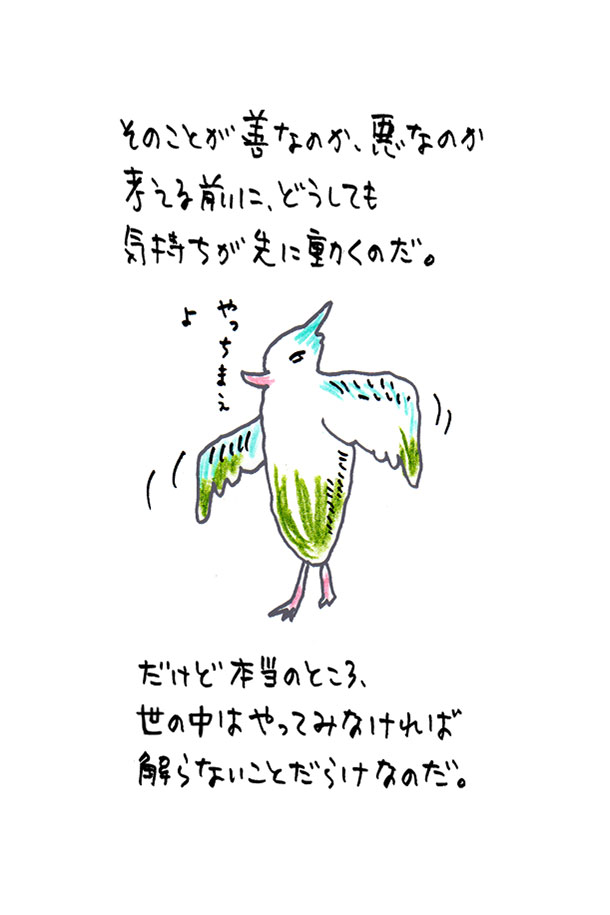 そのことが善なのか、悪なのか
考える前に、どうしても
気持ちが先に動くのだ。
やっちまえ
よ
だけど本当のところ、
世の中はやってみなければ
解らないことだらけなのだ。